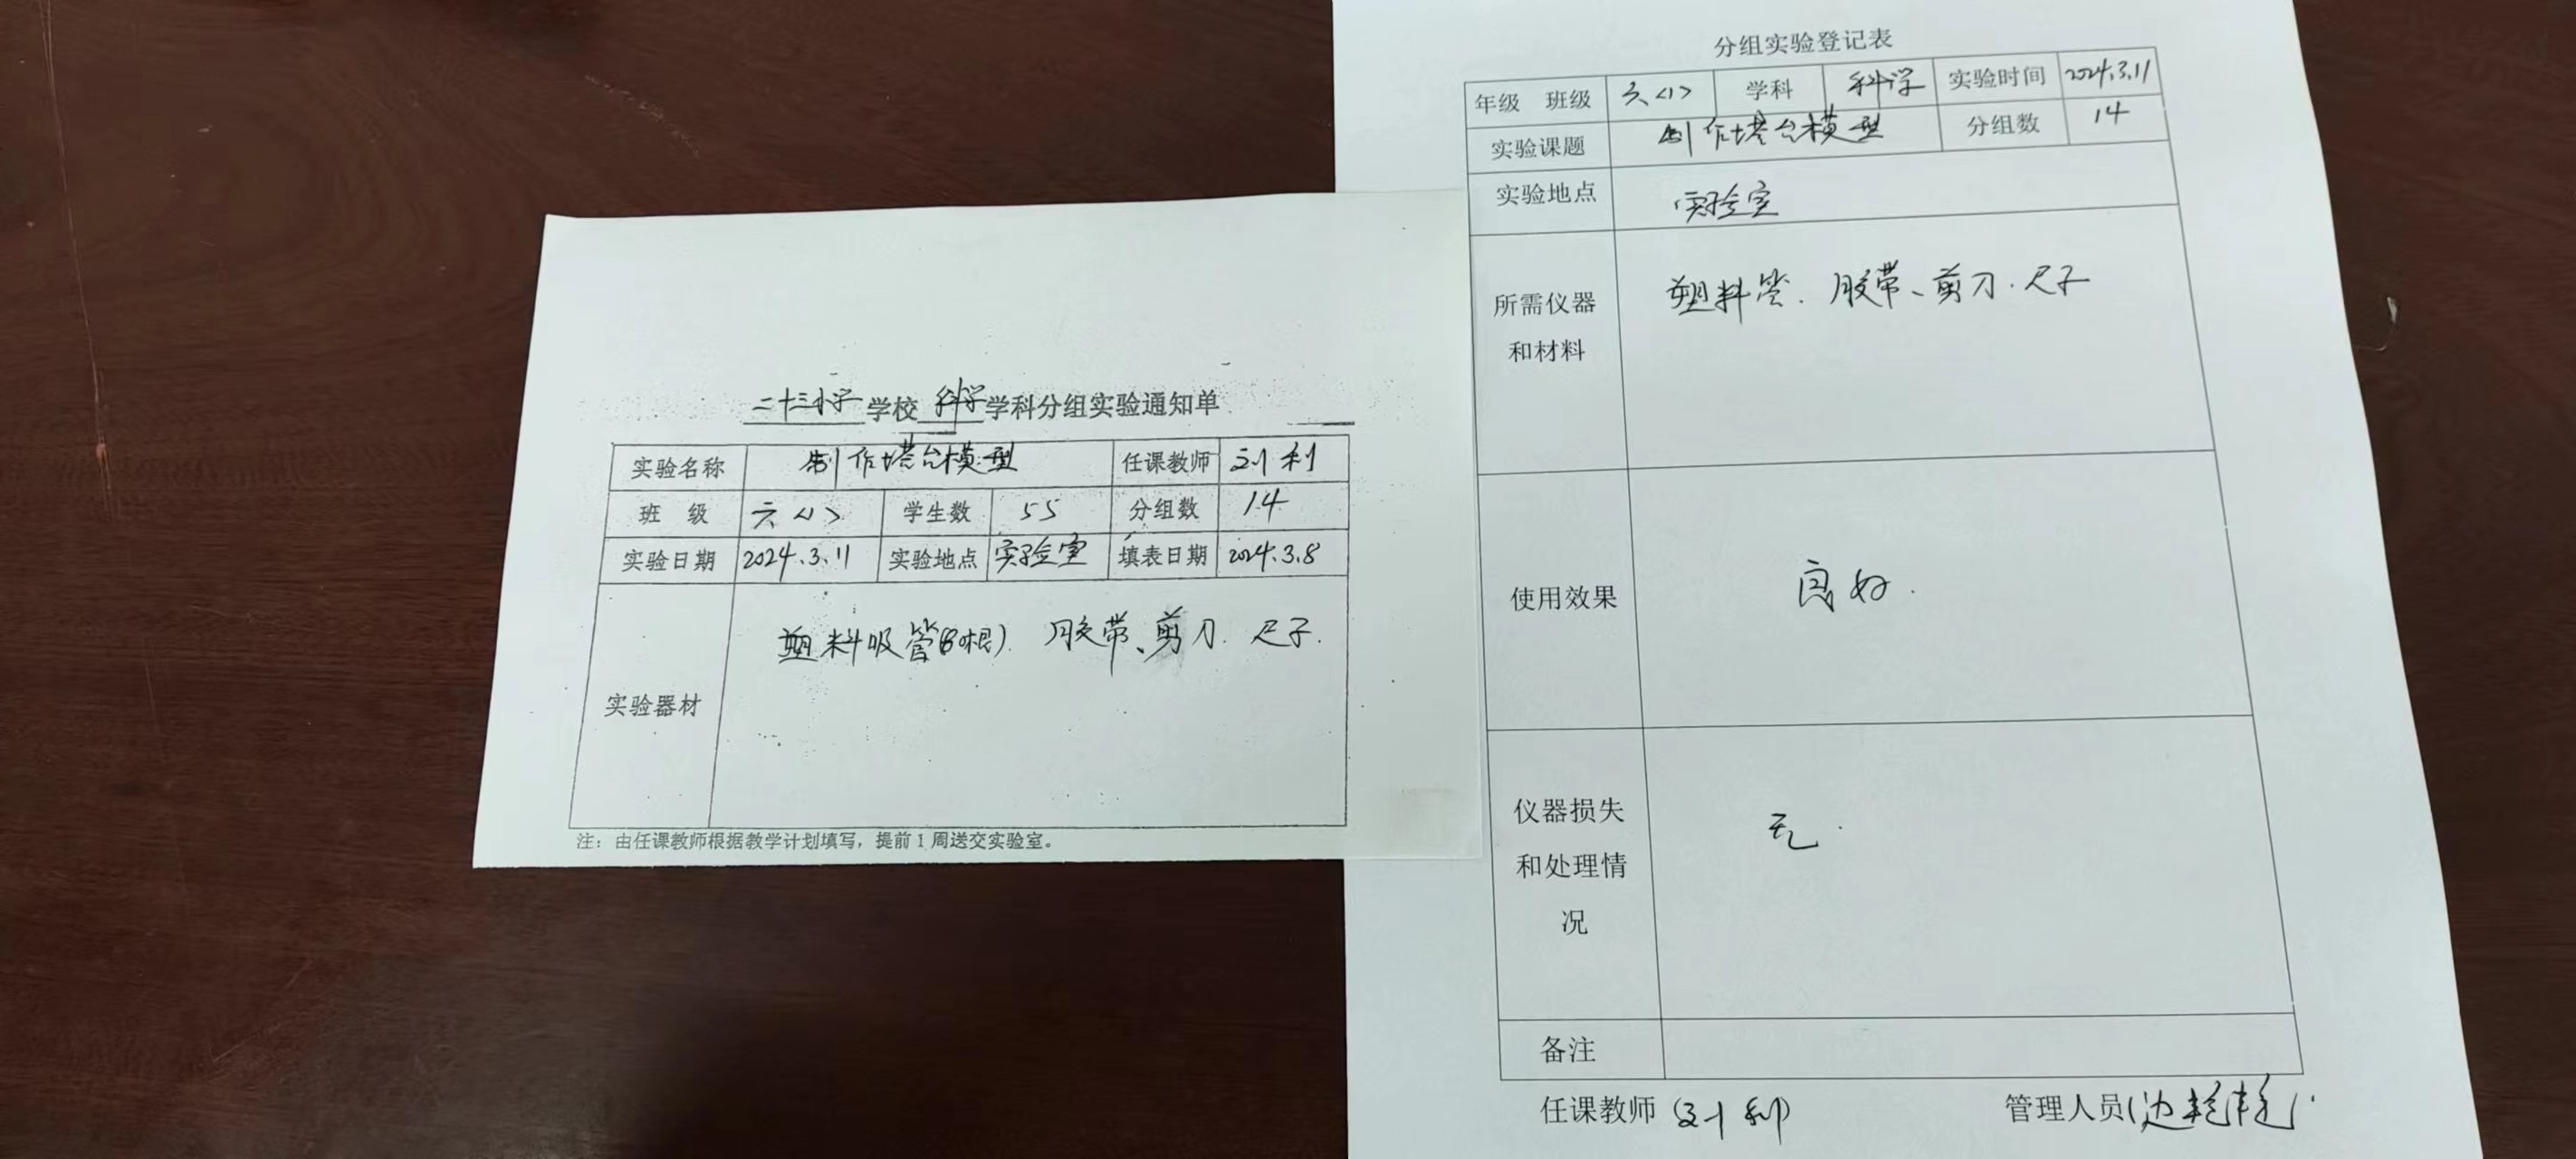 二十三小学 学校 科学 学科分组实验通知单
实验名称 制作塔台模型 任课教师 刘利
班 级 六<1> 学生数 55 分组数 14
实验日期 2024.3.11 实验地点 实验室 填表日期 2024.3.8
实验器材 塑料吸管(80根). 胶带、剪刀. 尺子.
注：由任课教师根据教学计划填写，提前1周送交实验室。
分组实验登记表
年级 班级 六<1> 学科 科学 实验时间 2024.3.11
实验课题 制作塔台模型 分组数 14
实验地点 实验室
所需仪器
和材料
塑料管. 胶带、剪刀. 尺子
使用效果 良好.
仪器损失
和处理情
况
无.
备注
任课教师(刘利) 管理人员(边